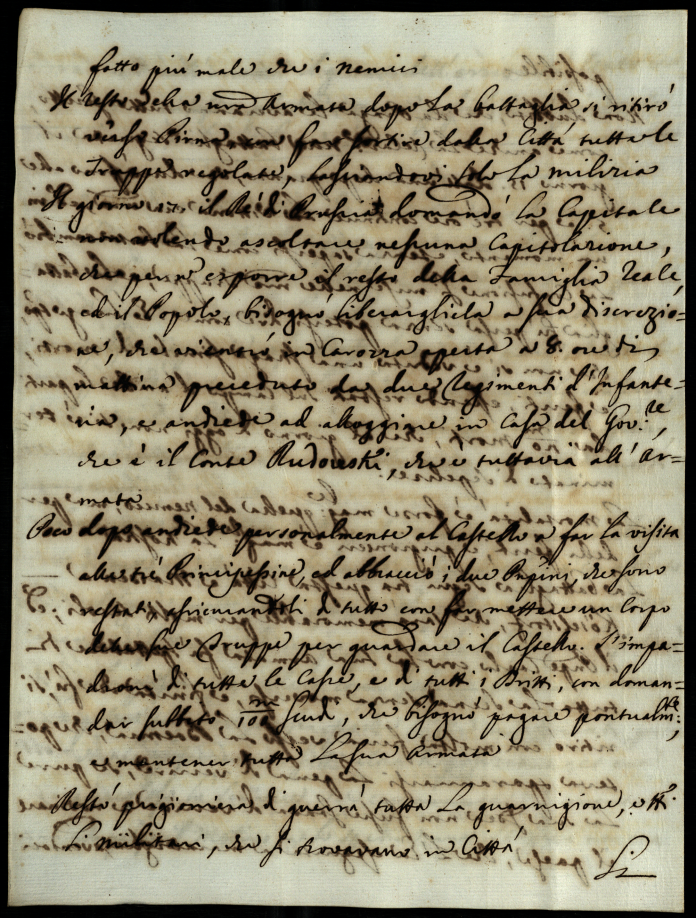 fatto più male che i nemici
Il resto della nrã Armata dopo La battaglia si ritirò
verso Pirna con far sortire dalla Città tutta le
Truppe regolate, lasciandovi solo La milizia
Il giorno il Rè di Prussia domandò La Capitale
non volendo ascoltare nessuna Capitolazione,
che per non esporre il resto della Famiglia reale,
ed il Popolo, bisognò liberargliela a sua discrezio=
ne, che vi entrò in Carozza aperta a 8. ore di
mattina preceduto da due Regimenti d'Infante=
ria, e andiede ad alloggiare in Casa del Gov.re,
che è il Conte Rudowski, che è tuttavia all'Ar=
mata
Poco dopo andiede personalmente al Castello a far La visita
alle tré Principessine, ed abbracciò i due Prpini, che sono
restati, assicurandoli di tutto con far mettere un Corpo
delle sue Truppe per guardare il Castello. S'impa=
dronì di tutte le Casse, e di tutti i Dritti, con doman=
dar subbito 100 m Scudi, che bisognò pagare pontualmte;
e mantener tutta La sua Armata
Restò prigioniera di guerra tutta La guarnigione, e tti
Li militari, che si trovavano in Città
Li